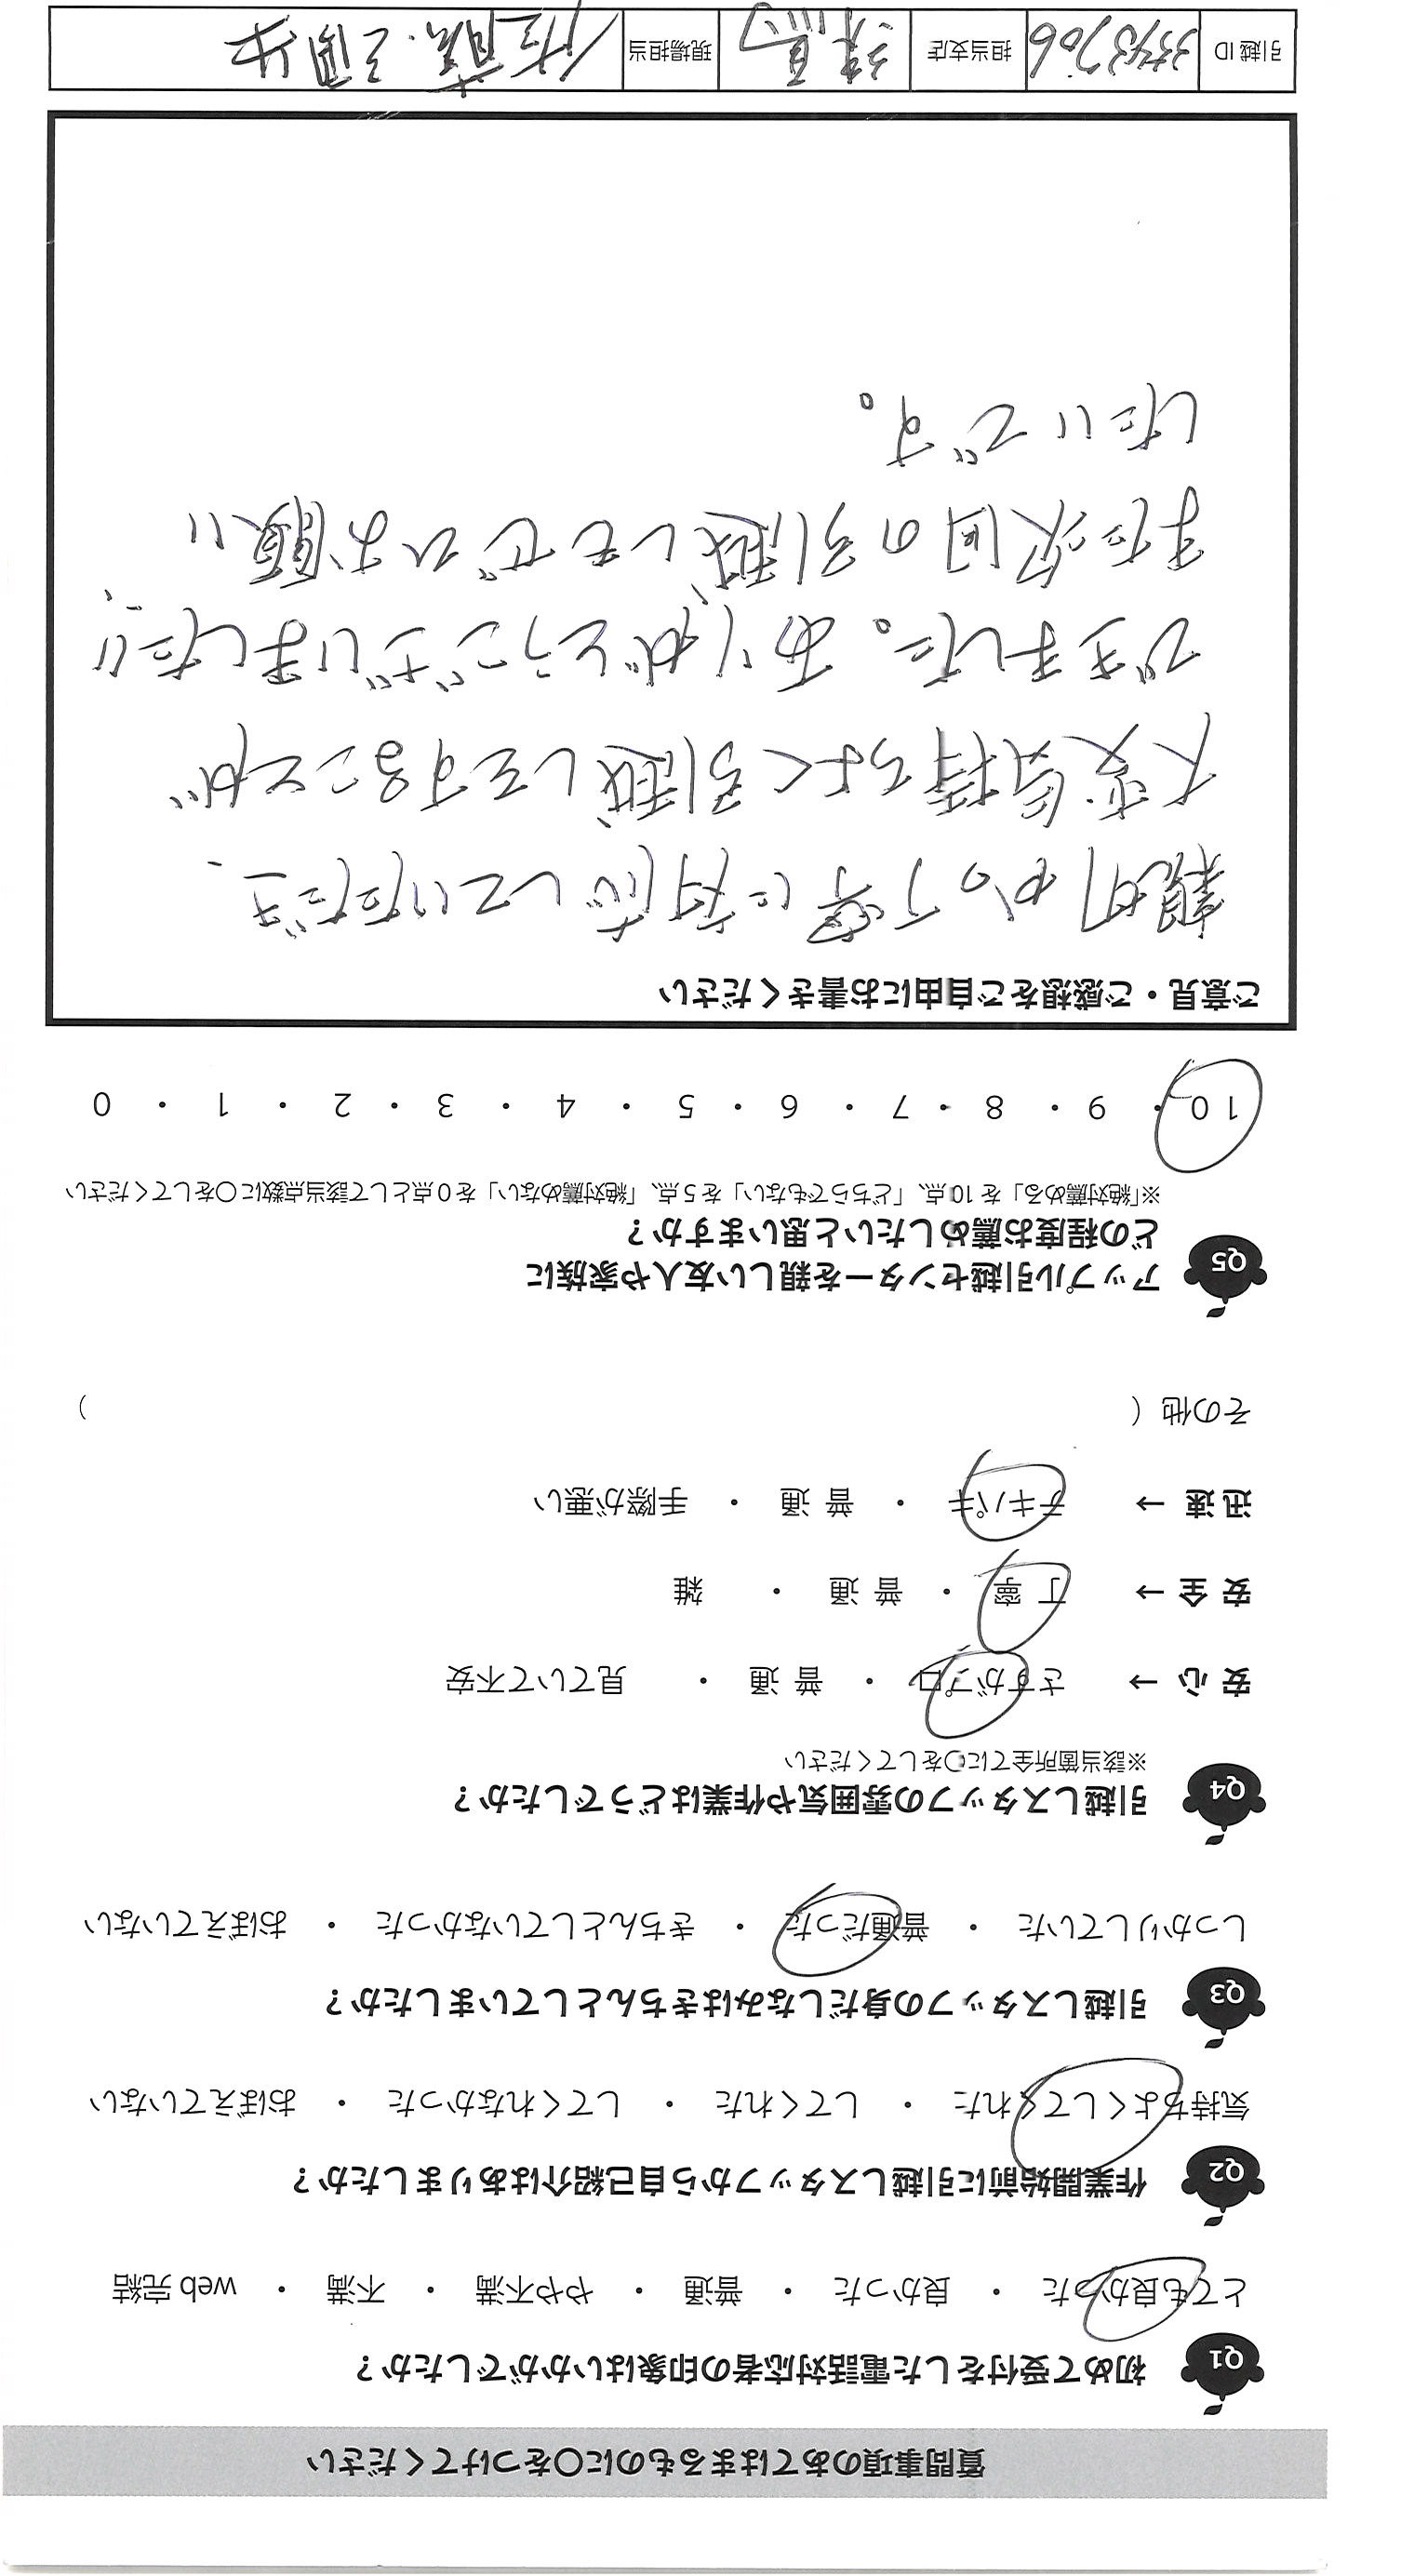 質問事項のあてはまるものに〇をつけてください
Q1 初めて受付をした電話対応者の印象はいかがでしたか？
とても良かった ・ 良かった ・ 普通 ・ やや不満 ・ 不満 ・ web完結
Q2 作業開始前に引越しスタッフから自己紹介はありましたか？
気持ちよくしてくれた ・ してくれた ・ してくれなかった ・ おぼえていない
Q3 引越しスタッフの身だしなみはきちんとしていましたか？
しっかりしていた ・ 普通だった ・ きちんとしていなかった ・ おぼえていない
Q4 引越しスタッフの雰囲気や作業はどうでしたか？
※該当箇所全てに〇をしてください
安心 → さすがプロ ・ 普通 ・ 見ていて不安
安全 → 丁寧 ・ 普通 ・ 雑
迅速 → テキパキ ・ 普通 ・ 手際が悪い
その他（ ）
Q5 アップル引越センターを親しい友人や家族に
どの程度お薦めしたいと思いますか？
※「絶対薦める」を10点、「どちらでもない」を5点、「絶対薦めない」を0点として該当点数に〇をしてください
10 ・ 9 ・ 8 ・ 7 ・ 6 ・ 5 ・ 4 ・ 3 ・ 2 ・ 1 ・ 0
ご意見・ご感想をご自由にお書きください
親切かつ丁寧に対応していただき、
大変気持ちよく引越しをすることが
できました。ありがとうございました!!
また次回の引越しもぜひお願い
したいです。
引越ID 3343706 担当支店 練馬 現場担当 佐藤・三国井